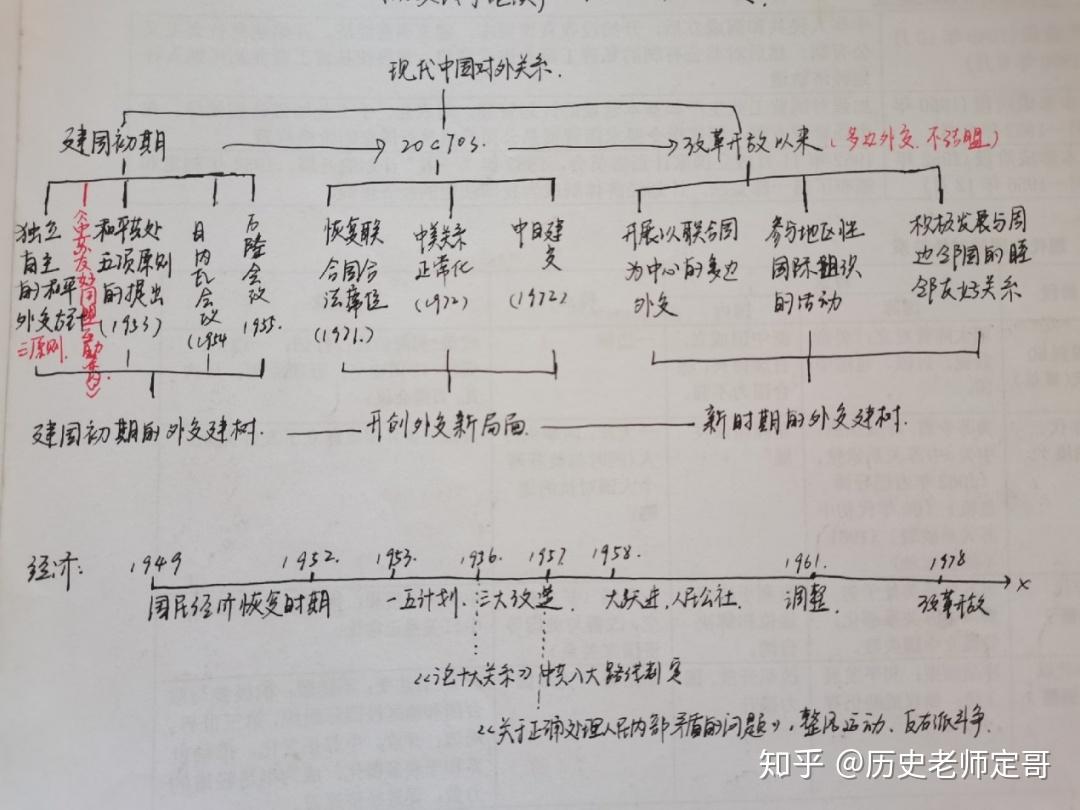 现代中国对外关系.
建国初期
20C70s.
改革开放以来(多边外交.不结盟)
独立
自主
的和平
外交方针
三原则.
《中苏友好同盟互助条约》.
和平共处
五项原则
的提出
(1953)
日内瓦会议
(1954
万隆会议
1955.
恢复联
合国合
法席位
(1971.)
中美关系
正常化
(1972)
中日建
交
(1972)
开展以联合国
为中心的多边
外交
参与地区性
国际组织
的活动
积极发展与周
边邻国的睦
邻友好关系
建国初期的外交建树.
开创外交新局面.
新时期的外交建树.
经济:
1949 1952. 1953. 1956. 1957. 1958. 1961. 1978
x
国民经济恢复时期 一五计划. 三大改造. 大跃进.人民公社. 调整. 改革开放
《论十大关系》中共八大路线制定
《关于正确处理人民内部矛盾的问题》,整风运动、反右派斗争.
知乎 @历史老师定哥